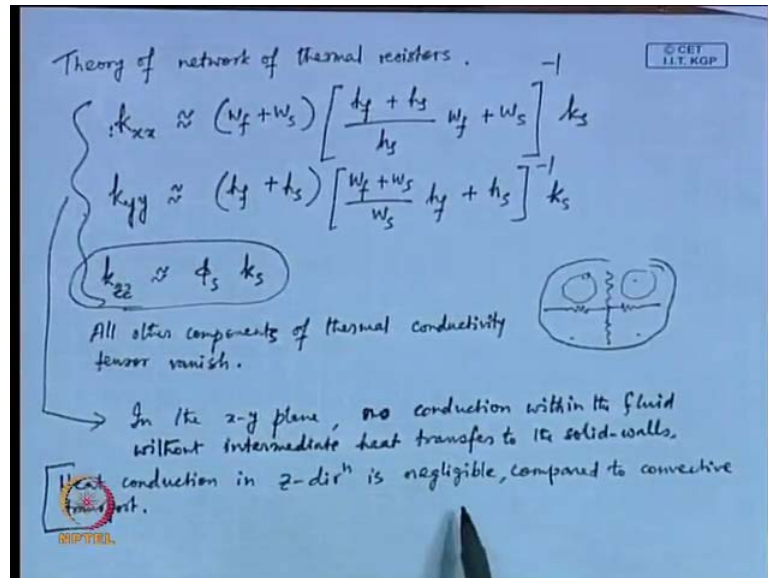 Theory of network of thermal resistors.
© CET
I.I.T. KGP
:k_xx ≈ (w_f + w_s) [ (h_f + h_s)/h_s w_f + w_s ]^-1 k_s
k_yy ≈ (h_f + h_s) [ (w_f + w_s)/w_s h_f + h_s ]^-1 k_s
k_zz ≈ ϕ_s k_s
All other components of thermal conductivity
tensor vanish.
→ In the x-y plane, no conduction within the fluid
without intermediate heat transfer to the solid-walls.
Heat conduction in z-dir^n is negligible, compared to convective
transport.
NPTEL